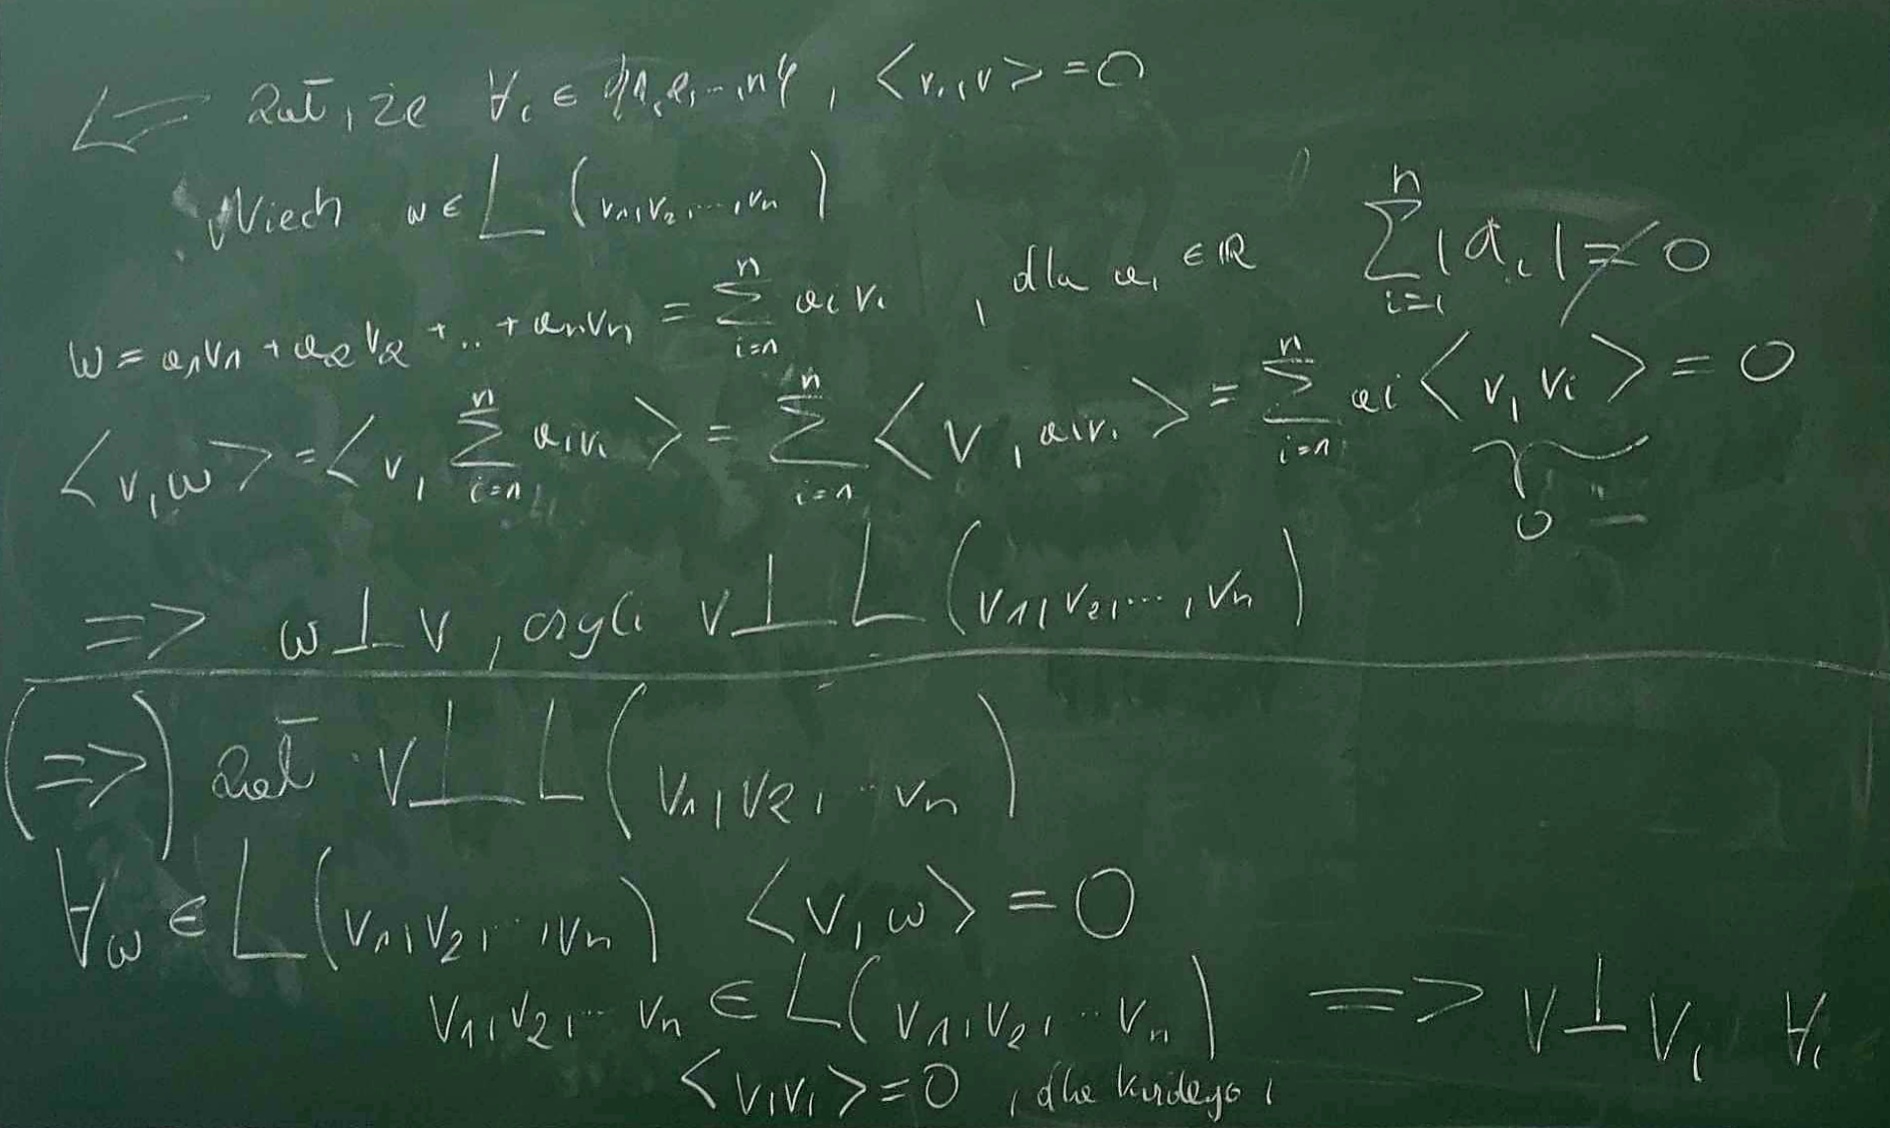 ⇐ Zał, że ∀i ∈ {1,2,...,n}, <vi,v> = 0
Niech w ∈ L (v1,v2,...,vn)
w = α1v1 + α2v2 + .. + αnvn = ∑_{i=1}^{n} αi vi , dla αi ∈ ℝ ∑_{i=1}^{n} |αi| ≠ 0
<v,w> = <v, ∑_{i=1}^{n} αivi> = ∑_{i=1}^{n} <v, αivi> = ∑_{i=1}^{n} αi <v,vi> = 0
0
=> w ⊥ v, czyli v ⊥ L (v1,v2,...,vn)
(=>) Zał v ⊥ L (v1,v2,..vn)
∀w ∈ L (v1,v2,..,vn) <v,w> = 0
v1,v2,.. vn ∈ L (v1,v2,..vn) => v ⊥ vi ∀i
<v,vi> = 0 , dla każdego i